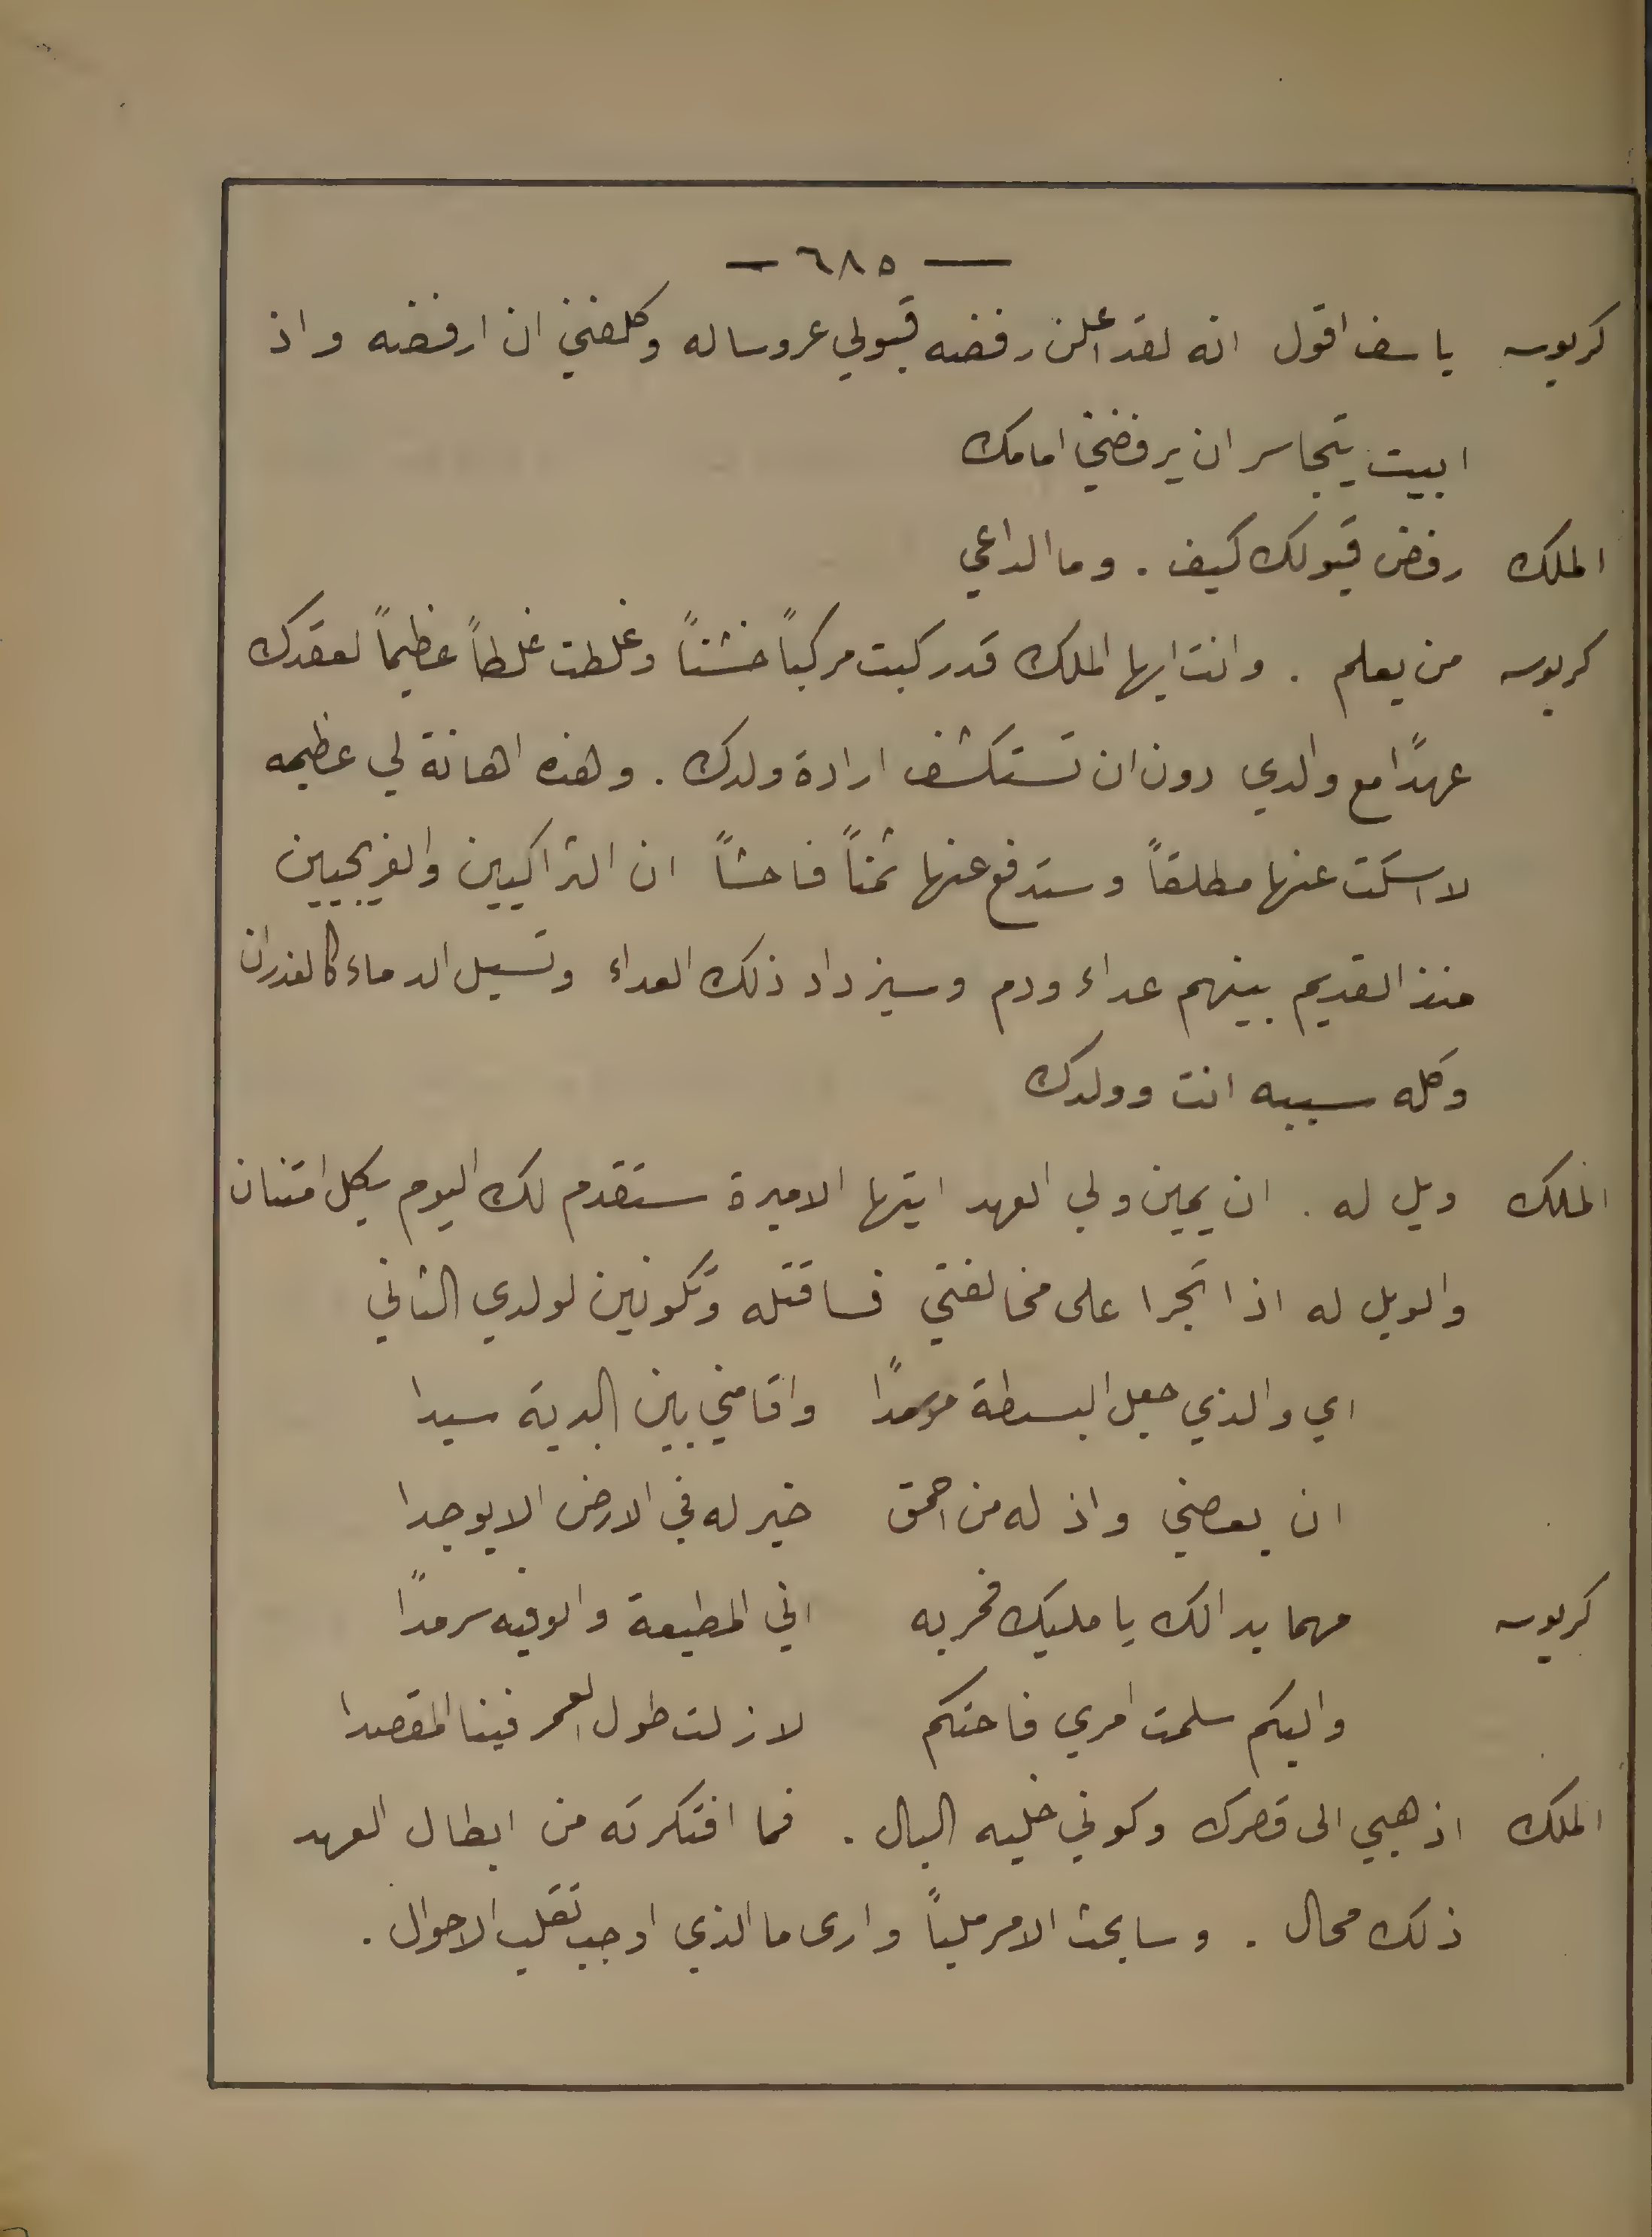 — ٦٨٥ —
كريوسه ياسف اقول انه لقد اعلن رفضه قبولي عروسا له وكلفني ان ارفضه واذ
ابيت يتجاسر ان يرفضني امامك
الملك رفض قبولك كيف . وما الداعي
كريوسه من يعلم . وانت ايها الملك قد ركبت مركباً خشناً وغلطت غلطاً عظيماً لعقدك
عهدًا مع والدي دون ان تستكشف ارادة ولدك . وهذه اهانة لي عظيمه
لا اسكت عنها مطلقاً وستدفع عنها ثمناً فاحشاً ان التراكيين والفريجيين
منذ القديم بينهم عداء ودم وسيزداد ذلك العداء وتسيل الدماء كالغدران
وكله سببه انت وولدك
الملك ويل له . ان يمين ولي العهد ايتها الاميرة ستقدم لك اليوم بكل امتنان
والويل له اذا تجرا على مخالفتي فساقتله وتكونين لولدي الثاني
اي والذي جعل البسطة واقامني بين البرية سيدا
ان يعصني واذ له من احمق خير له في الارض الا يوجدا
كريوسه مهما بدا لك يا مليك فمر به اني المطيعة والوفيه سرمدًا
واليكم سلمت امري فاحتكم لا زلت طول العمر فينا المقصدا
الملك اذهبي الى قصرك وكوني خليه البال . فما افتكرته من ابطال العهد
ذلك محال . وسابحث الامر ملياً وارى ما الذي اوجب تقلب الاحوال .